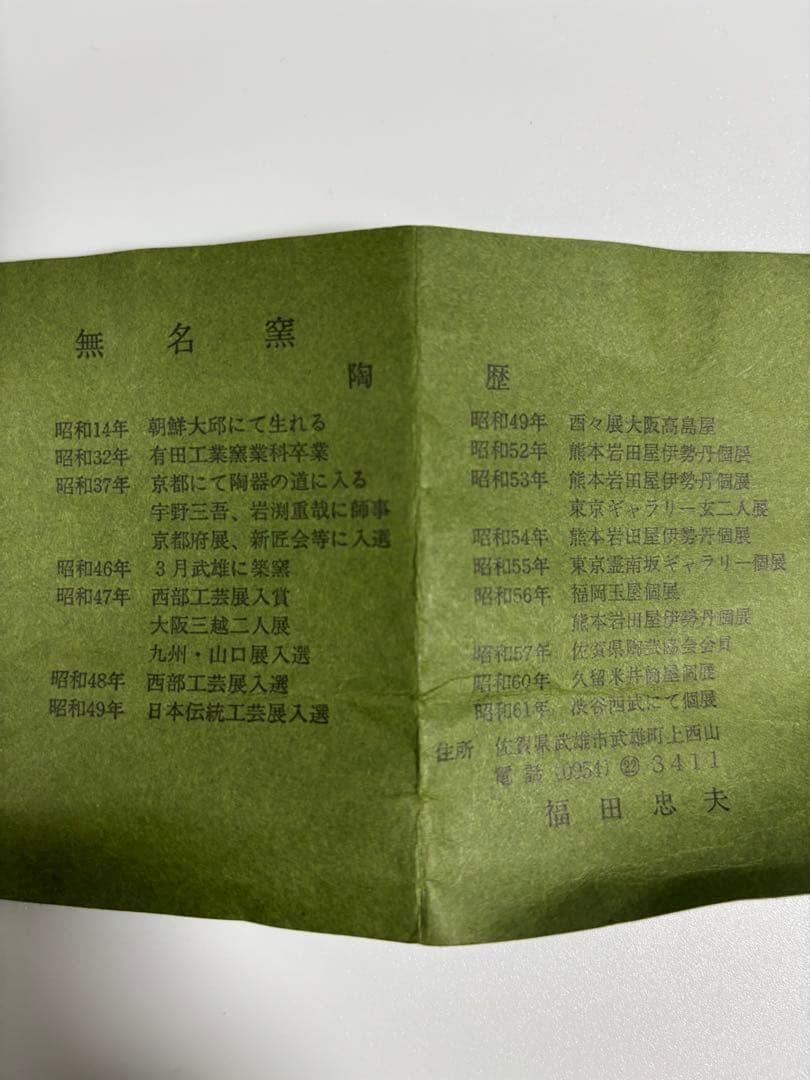 無名窯
陶歴
昭和14年 朝鮮大邱にて生れる
昭和32年 有田工業窯業科卒業
昭和37年 京都にて陶器の道に入る
宇野三吾、岩渕重哉に師事
京都府展、新匠会等に入選
昭和46年 3月武雄に築窯
昭和47年 西部工芸展入賞
大阪三越二人展
九州・山口展入選
昭和48年 西部工芸展入選
昭和49年 日本伝統工芸展入選
昭和49年 酉々展大阪高島屋
昭和52年 熊本岩田屋伊勢丹個展
昭和53年 熊本岩田屋伊勢丹個展
東京ギャラリー玄二人展
昭和54年 熊本岩田屋伊勢丹個展
昭和55年 東京霊南坂ギャラリー個展
昭和56年 福岡玉屋個展
熊本岩田屋伊勢丹個展
昭和57年 佐賀県陶芸協会会員
昭和60年 久留米井筒屋個展
昭和61年 渋谷西武にて個展
住所 佐賀県武雄市武雄町上西山
電話 (0954) ㉒ 3411
福田忠夫